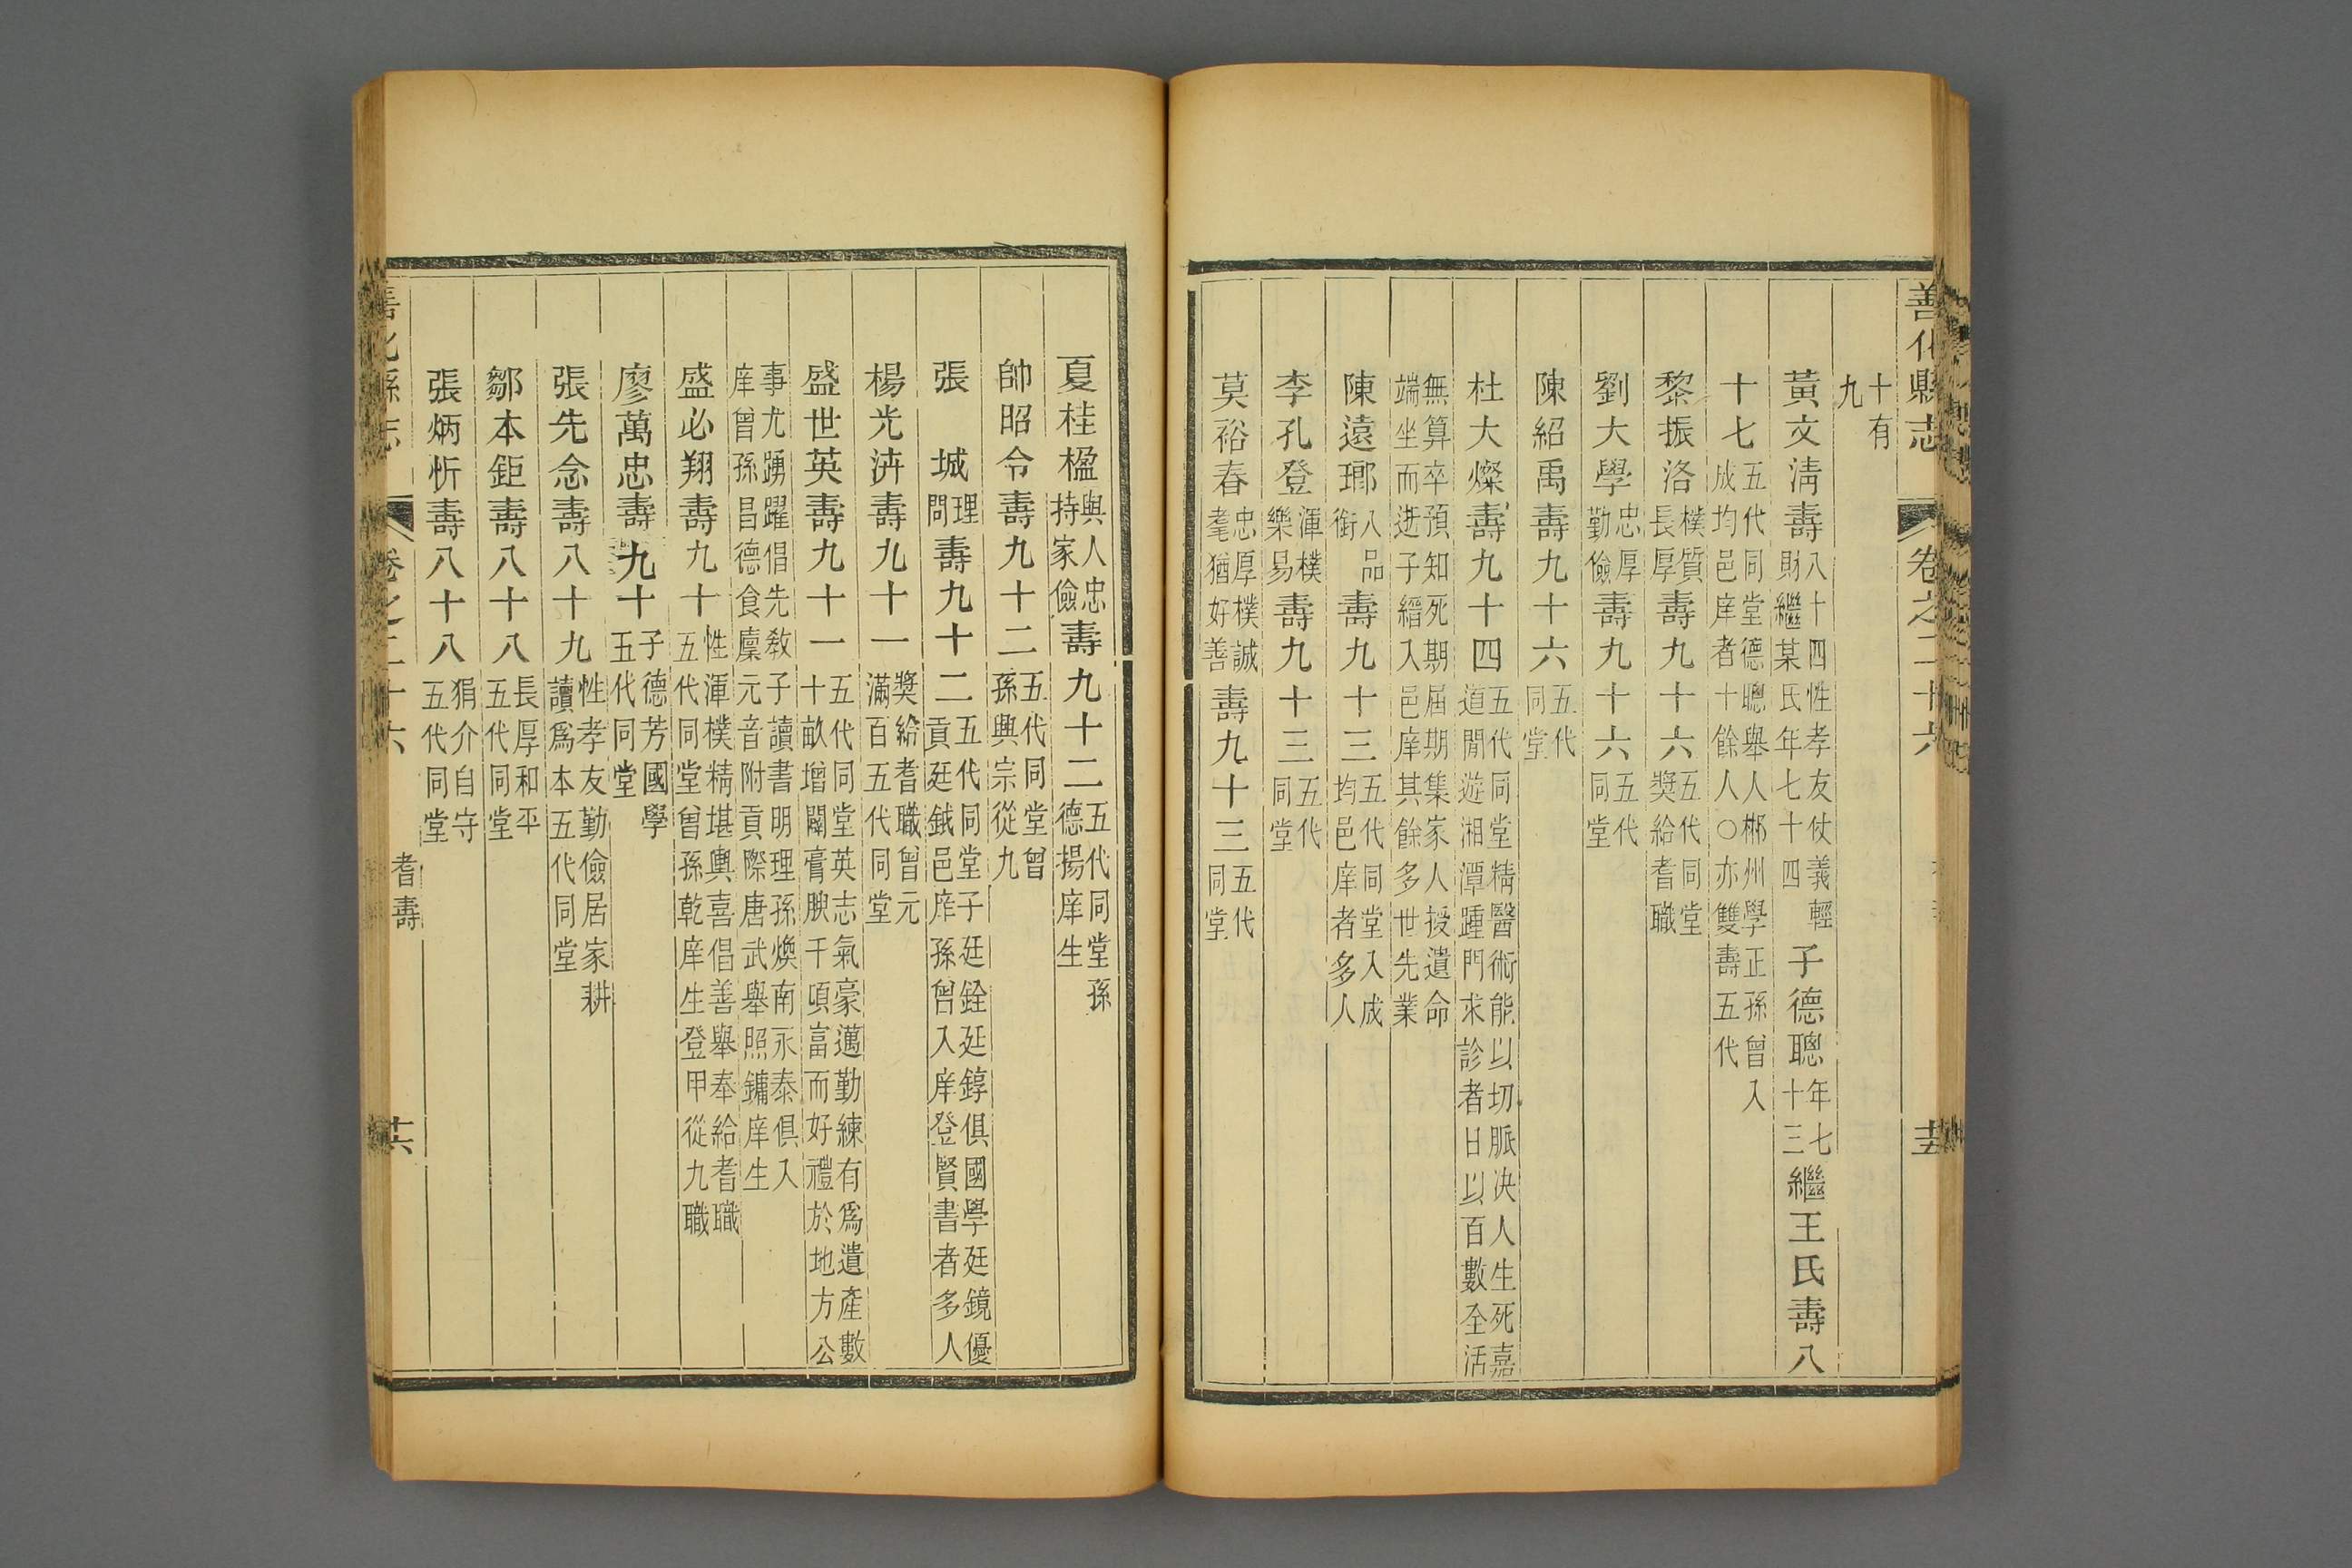 善化縣志 卷之二十六
十有
九
黃文淸壽八十四性孝友仗義輕
財繼某氏年七十四子德聰年七
十三繼王氏壽八
十七五代同堂德聰舉人郴州學正孫曾入
成均邑庠者十餘人○亦雙壽五代
黎振洛樸質
長厚壽九十六五代同堂
奬給耆職
劉大學忠厚
勤儉壽九十六五代
同堂
陳紹禹壽九十六五代
同堂
杜大燦壽九十四五代同堂精醫術能以切脈決人生死嘉
道閒遊湘潭踵門求診者日以百數全活
無算卒預知死期屆期集家人授遺命
端坐而逝子縉入邑庠其餘多世先業
陳遠瑯八品
銜壽九十三五代同堂入成
均邑庠者多人
李孔登渾樸
樂易壽九十三五代
同堂
莫裕春忠厚樸誠
耄猶好善壽九十三五代
同堂
夏桂楹與人忠
持家儉壽九十二五代同堂孫
德揚庠生
帥昭令壽九十二五代同堂曾
孫興宗從九
張 城理
問壽九十二五代同堂子廷銓廷錞俱國學廷鏡優
貢廷鉞邑庠孫曾入庠登賢書者多人
楊光泋壽九十一奬給耆職曾元
滿百五代同堂
盛世英壽九十一五代同堂英志氣豪邁勤練有爲遺產數
十畝增闢膏腴千頃富而好禮於地方公
事尤踴躍倡先敎子讀書明理孫煥南永泰俱入
庠曾孫昌德食廩元音附貢際唐武舉照鏞庠生
盛必翔壽九十性渾樸精堪輿喜倡善舉奉給耆職
五代同堂曾孫乾庠生登甲從九職
廖萬忠壽九十子德芳國學
五代同堂
張先念壽八十九性孝友勤儉居家耕
讀爲本五代同堂
鄒本鉅壽八十八長厚和平
五代同堂
張炳忻壽八十八狷介自守
五代同堂
善化縣志 卷之二十六 耆壽